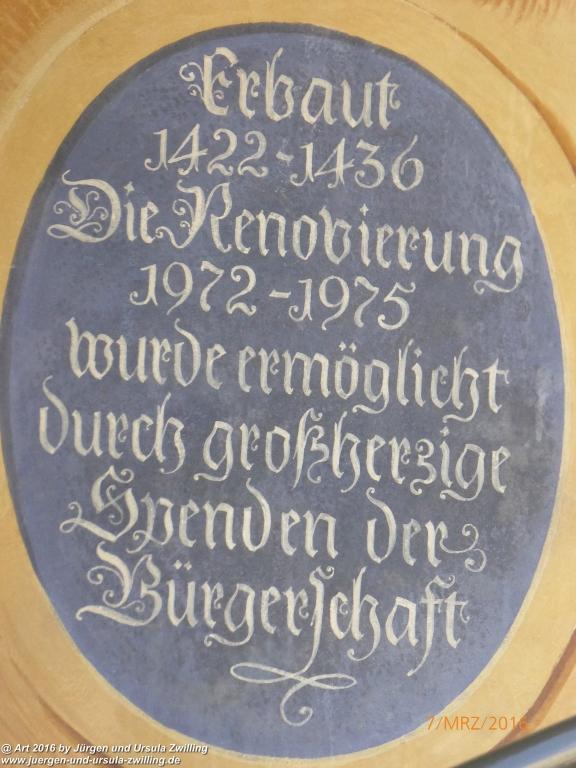 Erbaut
1422-1436
Die Renovierung
1972-1975
wurde ermöglicht
durch großherzige
Spenden der
Bürgerschaft
7/MRZ/2016
@ Art 2016 by Jürgen und Ursula Zwilling
www.juergen-und-ursula-zwilling.de